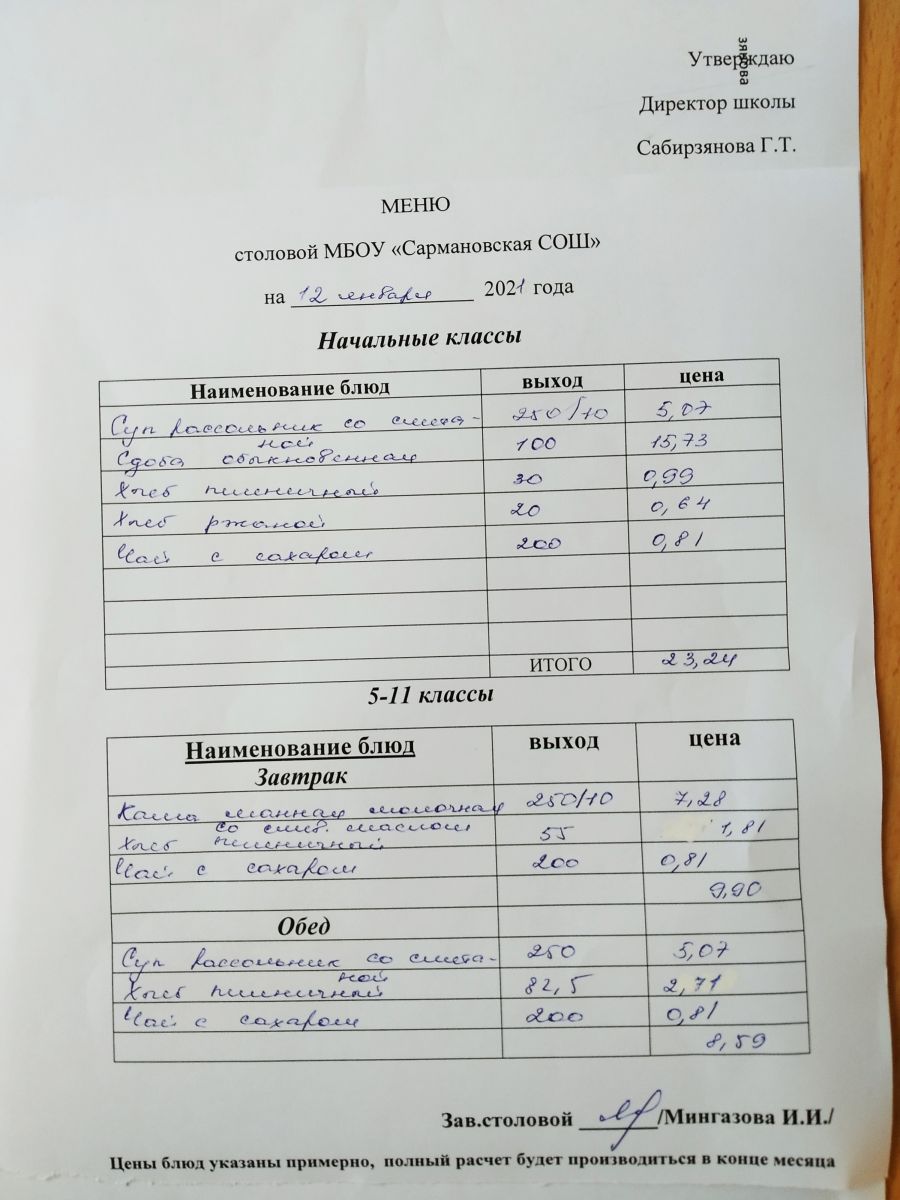 Утверждаю
зянова
Директор школы
Сабирзянова Г.Т.
МЕНЮ
столовой МБОУ «Сармановская СОШ»
на 12 января 2021 года
Начальные классы
Наименование блюд выход цена
Суп рассольник со смета- 250/10 5,07
ной
Сдоба обыкновенная 100 15,73
Хлеб пшеничный 30 0,99
Хлеб ржаной 20 0,64
Чай с сахаром 200 0,81
ИТОГО 23,24
5-11 классы
Наименование блюд выход цена
Завтрак
Каша манная молочная 250/10 7,28
со слив. маслом
Хлеб пшеничный 55 1,81
Чай с сахаром 200 0,81
9,90
Обед
Суп рассольник со смета- 250 5,07
ной
Хлеб пшеничный 82,5 2,71
Чай с сахаром 200 0,81
8,59
Зав.столовой /Мингазова И.И./
Цены блюд указаны примерно, полный расчет будет производиться в конце месяца